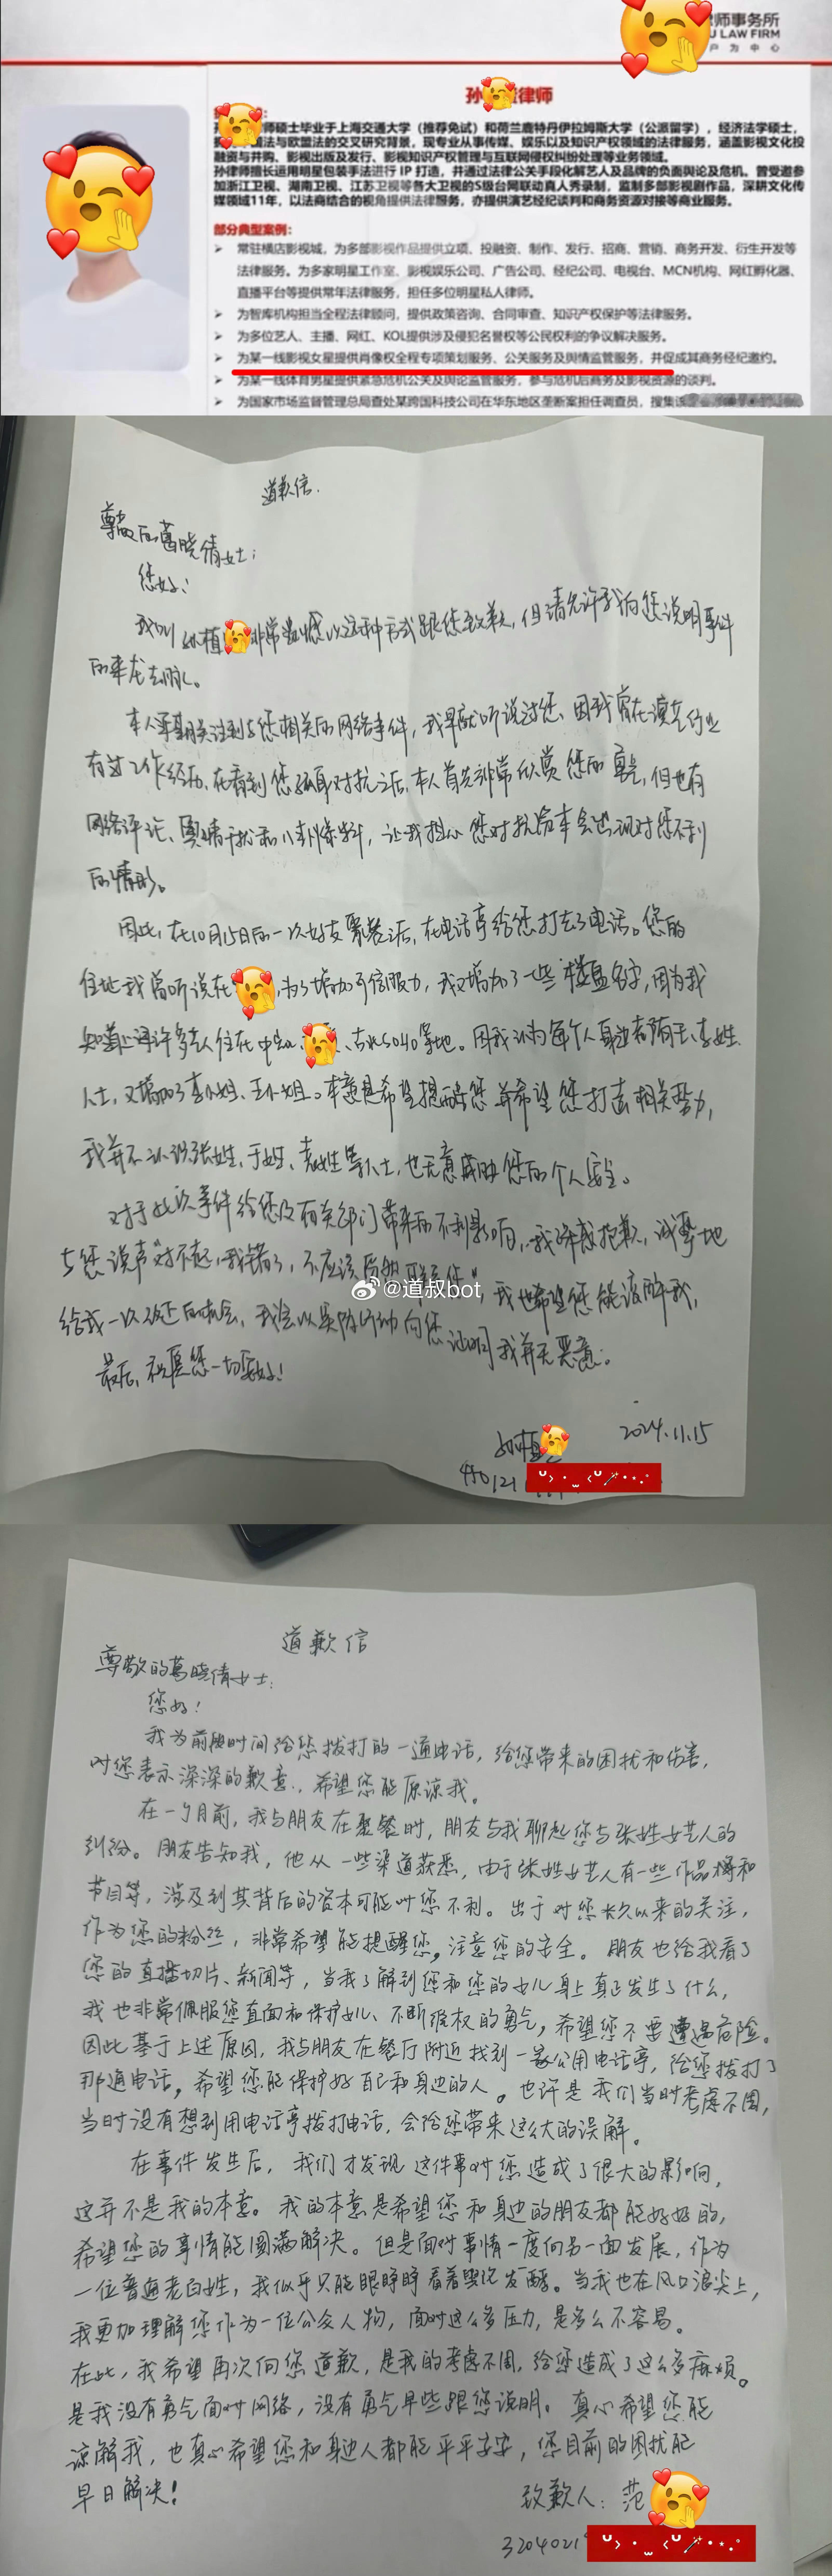 律师事务所
U LAW FIRM
户 为 中 心
孙 律师
师硕士毕业于上海交通大学（推荐免试）和荷兰鹿特丹伊拉姆斯大学（公派留学），经济法学硕士，
法与欧盟法的交叉研究背景，现专业从事传媒、娱乐以及知识产权领域的法律服务，涵盖影视文化投
融资与并购、影视出版及发行、影视知识产权管理与互联网侵权纠纷处理等业务领域。
孙律师擅长运用明星包装手法进行 IP 打造，并通过法律公关手段化解艺人及品牌的负面舆论及危机。曾受邀参
加浙江卫视、湖南卫视、江苏卫视等各大卫视的S级台网联动真人秀录制，监制多部影视剧作品，深耕文化传
媒领域11年，以法商结合的视角提供法律服务，亦提供演艺经纪谈判和商务资源对接等商业服务。
部分典型案例：
➢ 常驻横店影视城，为多部影视作品提供立项、投融资、制作、发行、招商、营销、商务开发、衍生开发等
法律服务。为多家明星工作室、影视娱乐公司、广告公司、经纪公司、电视台、MCN机构、网红孵化器、
直播平台等提供常年法律服务，担任多位明星私人律师。
➢ 为智库机构担当全程法律顾问，提供政策咨询、合同审查、知识产权保护等法律服务。
➢ 为多位艺人、主播、网红、KOL提供涉及侵犯名誉权等公民权利的争议解决服务。
➢ 为某一线影视女星提供肖像权全程专项策划服务、公关服务及舆情监管服务，并促成其商务经纪邀约。
➢ 为某一线体育男星提供紧急危机公关及舆论监管服务，参与危机后商务及影视资源的谈判。
➢ 为国家市场监督管理总局查处某跨国科技公司在华东地区垄断案担任调查员，搜集该
道歉信.
尊敬的葛晓倩女士：
您好！
我叫孙植 非常抱歉以这种方式跟您致歉，但请允许我向您说明事件
的来龙去脉。
本人 期关注到与您相关的网络事件，我早就听说过您、因我曾在演艺行业
有过工作经历、在看到您孤身对抗之后，本人首先非常欣赏您的勇气，但也有
网络评论、舆情干扰和八卦爆料，让我担心您对抗资本会出现对您不利
的情形。
因此，在10月15日的一次好友聚餐之后，在电话亭给您打去了电话。您的
住址我曾听说在 ，为了增加可信服力，我又增加了一些楼盘名字，因为我
知道上海许多艺人住在中 、 、古北5040等地。因我认为每个人身边都有王、李姓
人士，又增加了李小姐、王小姐。本意是希望提醒您并希望您打击相关势力，
我并不认识张姓、于姓、袁姓等人士，也无意威胁您的个人安全。
对于此次事件给您及有关部门带来的不利影响，我深感抱歉，诚挚地
与您说声“对不起，我错了，不应该 联系您”，我也希望您能谅解我，
给我一次改正的机会，我会以实际行动向您证明我并无恶意。
最后，祝愿您一切安好！
@道叔bot
孙植 2024.11.15
410121
道歉信
尊敬的葛晓倩女士：
您好！
我为前段时间给您拨打的一通电话，给您带来的困扰和伤害，
对您表示深深的歉意，希望您能原谅我。
在一个月前，我与朋友在聚餐时，朋友与我聊起您与张姓女艺人的
纠纷。朋友告知我，他从一些渠道获悉，由于张姓女艺人有一些作品播和
节目等，涉及到其背后的资本可能对您不利。出于对您长久以来的关注，
作为您的粉丝，非常希望能提醒您，注意您的安全。朋友也给我看了
您的直播切片、新闻等，当我了解到您和您的女儿身上真正发生了什么，
我也非常佩服您直面和保护女儿、不断维权的勇气，希望您不要遭遇危险。
因此基于上述原因，我与朋友在餐厅附近找到一家公用电话亭，给您拨打了
那通电话，希望您能保护好自己和身边的人。也许是我们当时考虑不周，
当时没有想到用电话亭拨打电话，会给您带来这么大的误解。
在事件发生后，我们才发现这件事对您造成了很大的影响，
这并不是我的本意。我的本意是希望您和身边的朋友都能好好的，
希望您的事情能圆满解决。但是面对事情一度向另一面发展，作为
一位普通老白姓，我似乎只能眼睁睁看着舆论发酵。当我也在风口浪尖上，
我更加理解您作为一位公众人物，面对这么多压力，是多么不容易。
在此，我希望再次向您道歉，是我的考虑不周，给您造成了这么多麻烦。
是我没有勇气面对网络，没有勇气早些跟您说明。真心希望您能
谅解我，也真心希望您和身边人都能平平安安，您目前的困扰能
早日解决！
致歉人：范
3204021